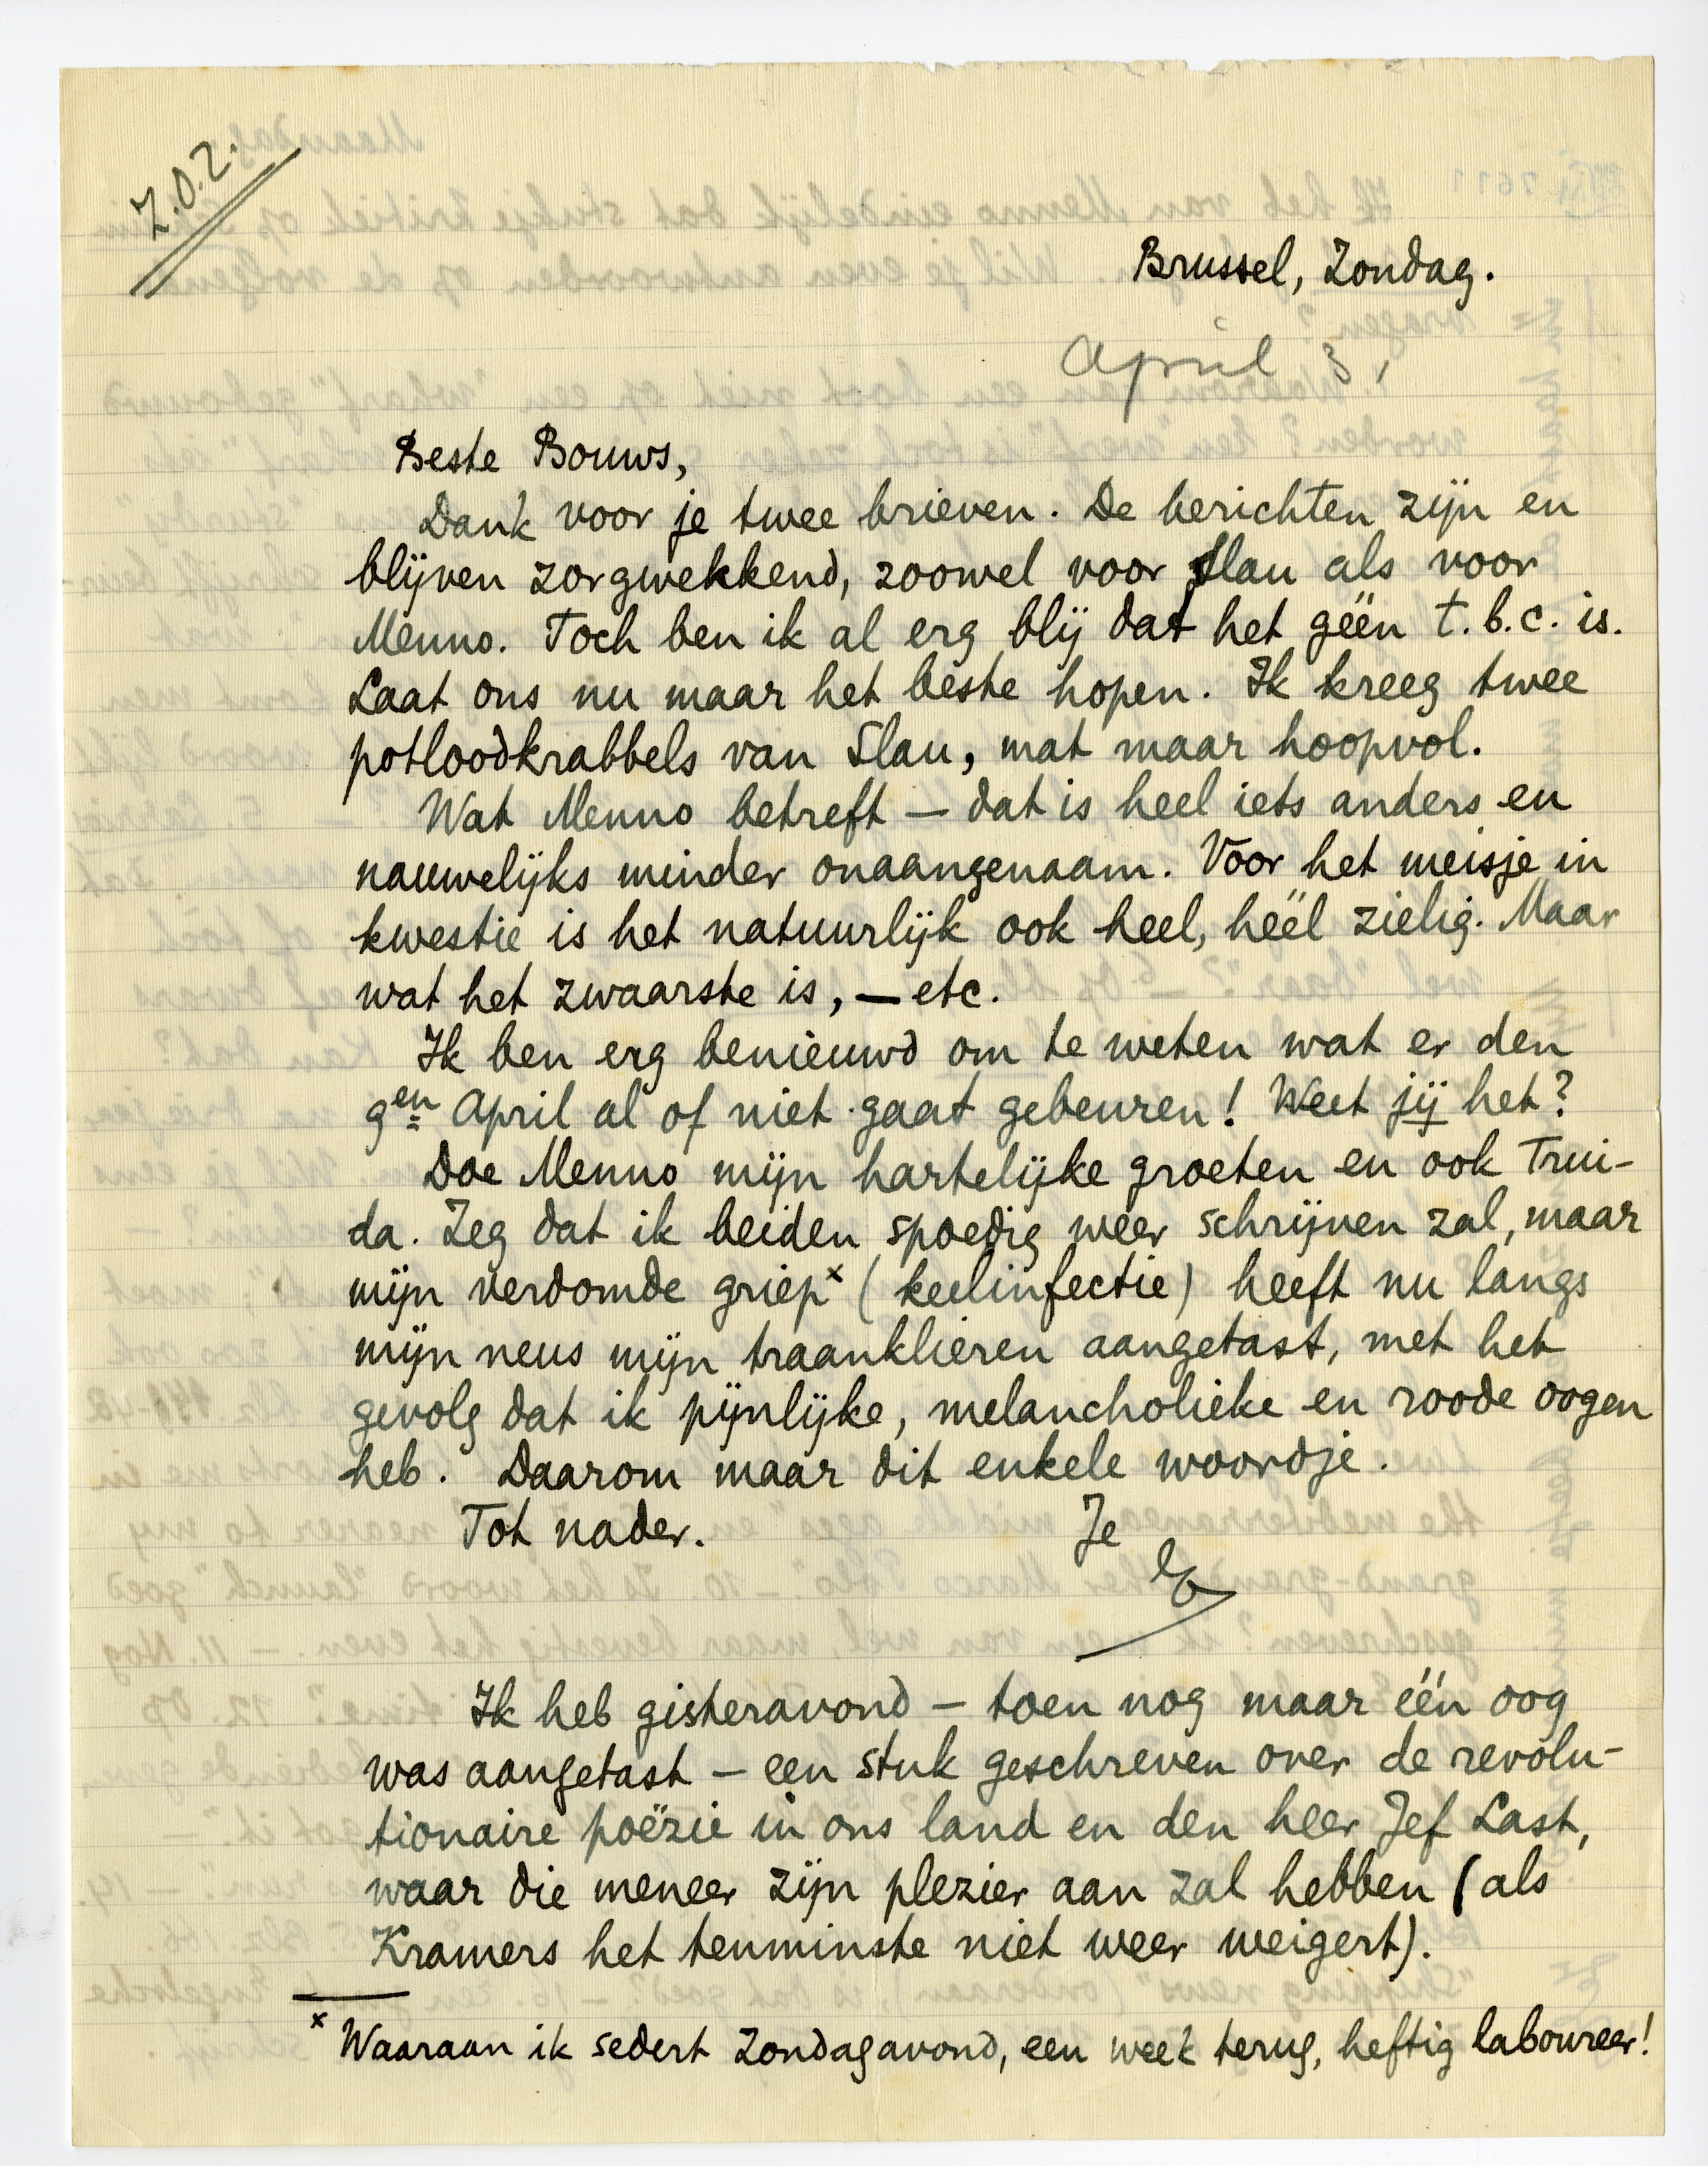 Z.O.Z.
Brussel, Zondag.
April 3,
Beste Bouws,
Dank voor je twee brieven. De berichten zijn en
blijven zorgwekkend, zoowel voor Slau als voor
Menno. Toch ben ik al erg blij dat het géén t.b.c. is.
Laat ons nu maar het beste hopen. Ik kreeg twee
potloodkrabbels van Slau, mat maar hoopvol.
Wat Menno betreft — dat is heel iets anders en
nauwelijks minder onaangenaam. Voor het meisje in
kwestie is het natuurlijk ook heel, héél zielig. Maar
wat het zwaarste is, — etc.
Ik ben erg benieuwd om te weten wat er den
9en April al of niet gaat gebeuren! Weet jij het?
Doe Menno mijn hartelijke groeten en ook Trui-
da. Zeg dat ik beiden spoedig weer schrijven zal, maar
mijn verdomde griep x (keelinfectie) heeft nu langs
mijn neus mijn traanklieren aangetast, met het
gevolg dat ik pijnlijke, melancholieke en roode oogen
heb. Daarom maar dit enkele woordje.
Tot nader. Je
Ik heb gisteravond — toen nog maar één oog
was aangetast — een stuk geschreven over de revolu-
tionaire poëzie in ons land en den heer Jef Last,
waar die meneer zijn plezier aan zal hebben (als
Kramers het tenminste niet weer weigert).
x Waaraan ik sedert Zondagavond, een week terug, heftig laboureer!